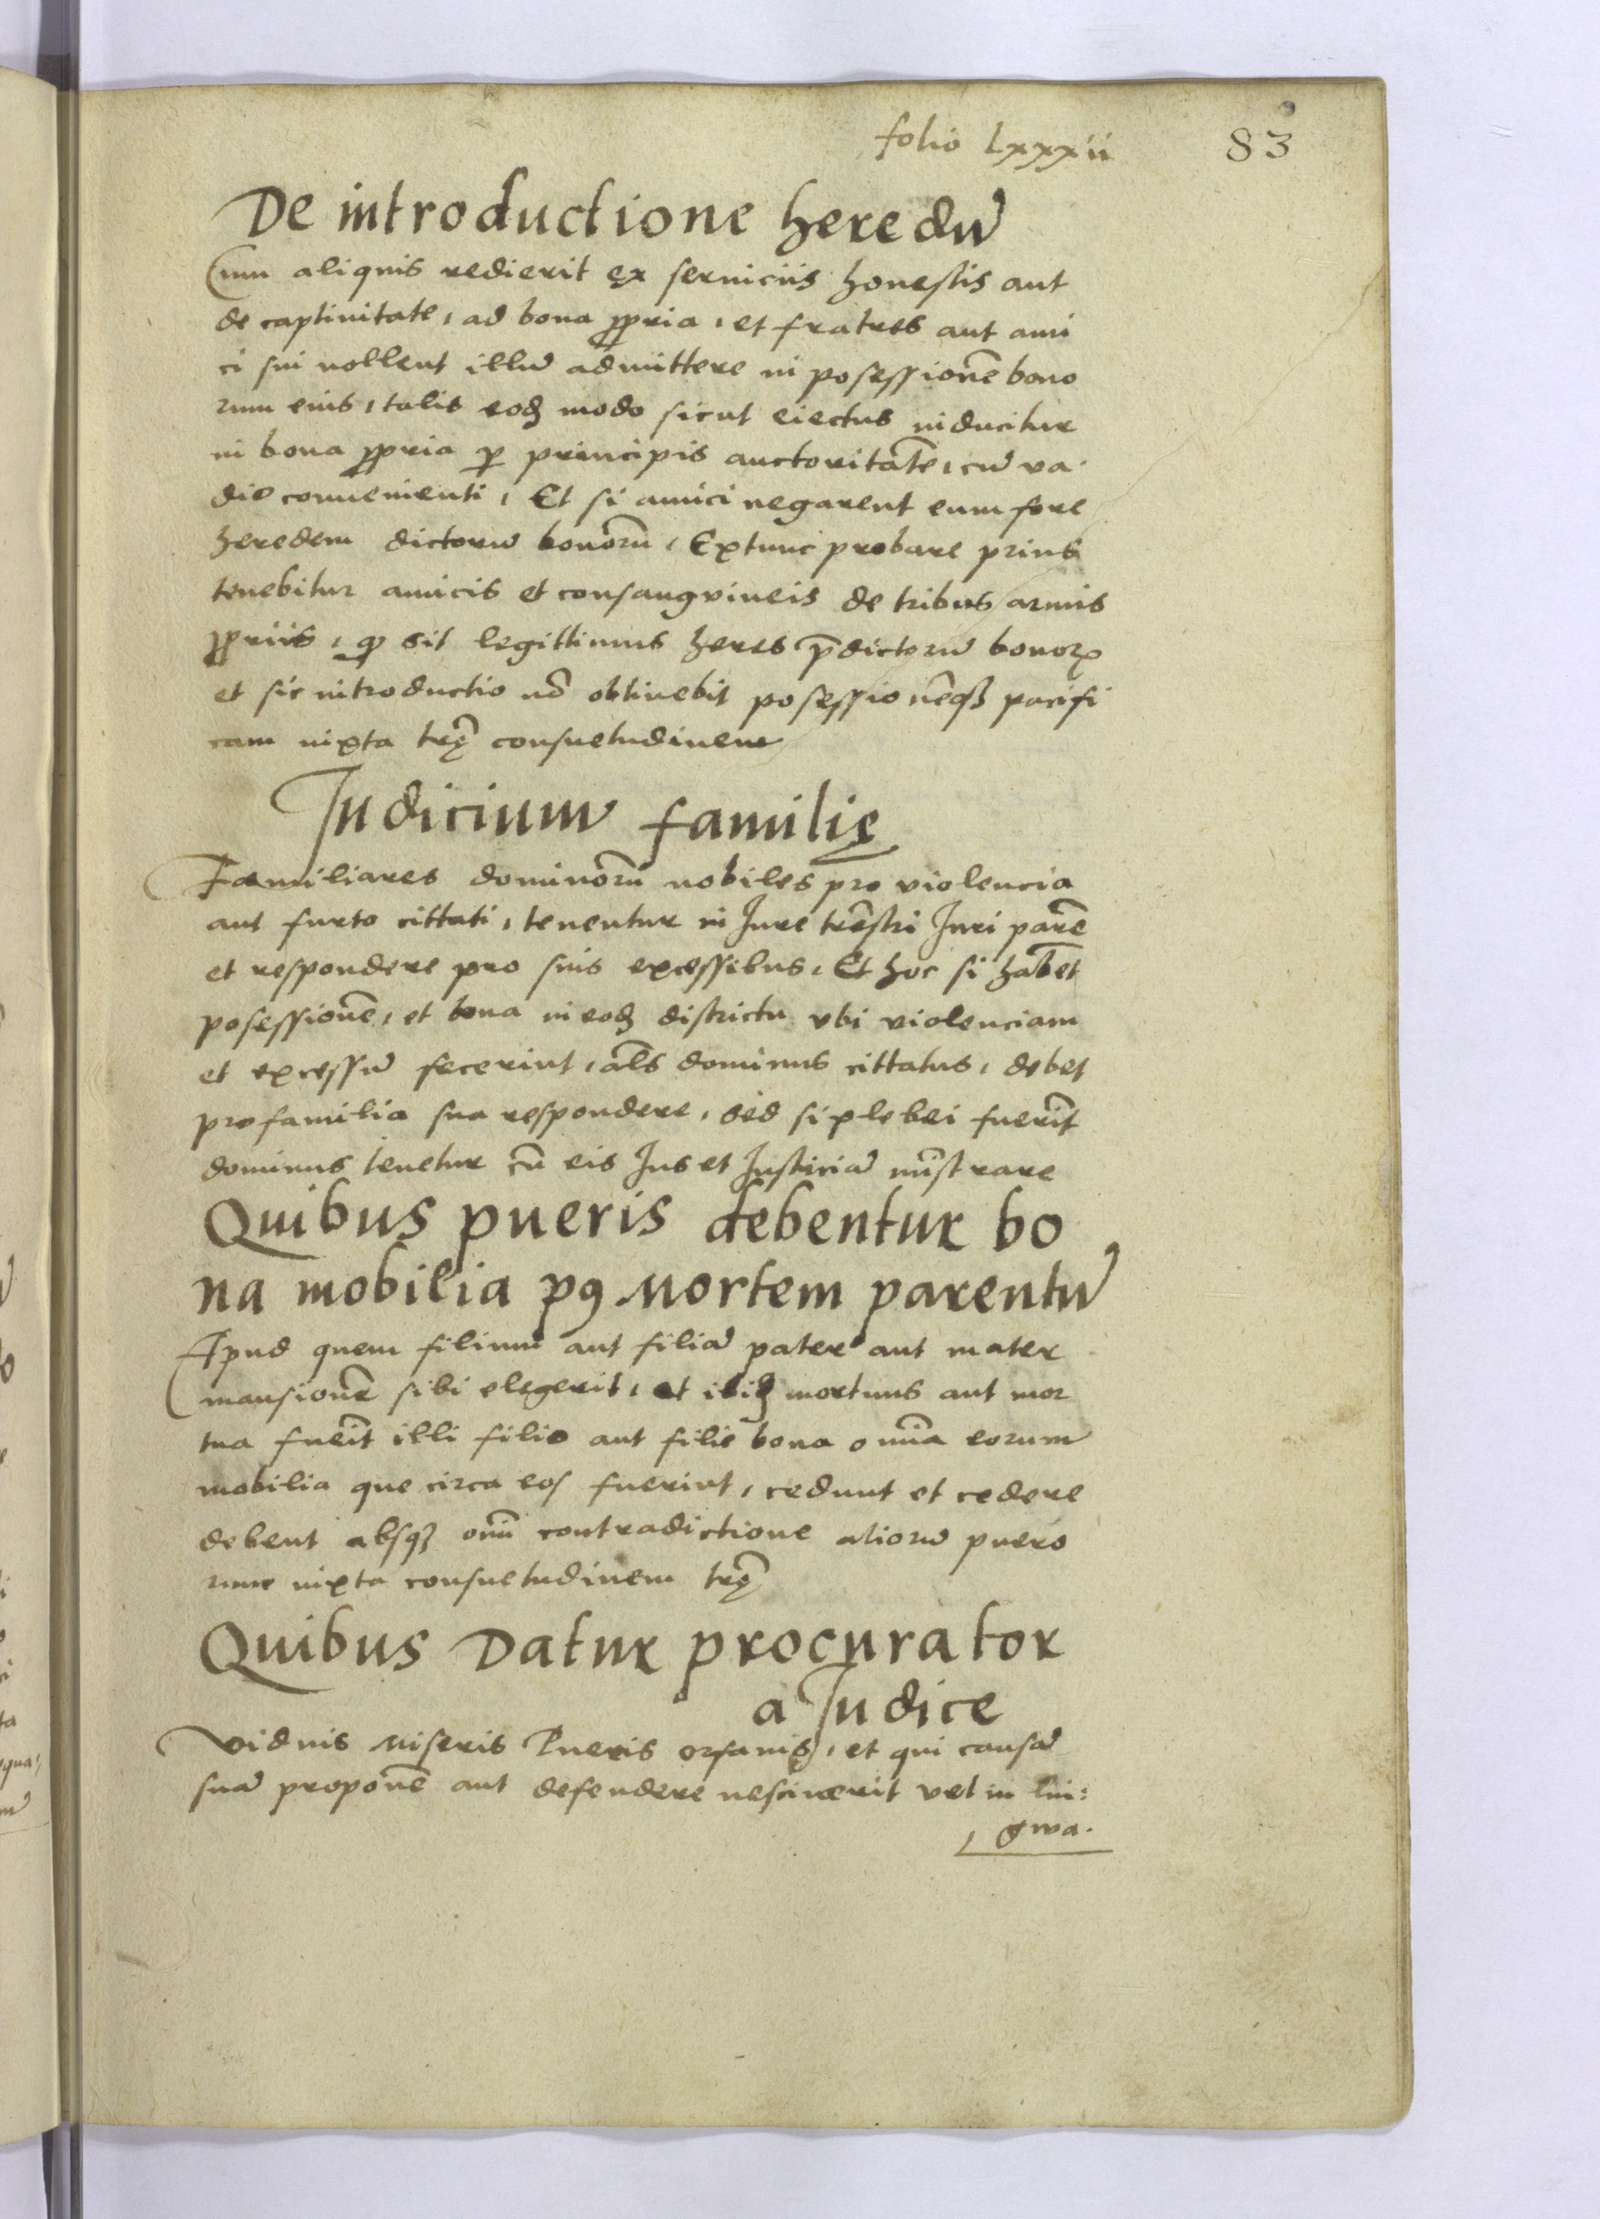 folio Lxxxii
83
De introductione heredū
Cum aliquis redierit ex seruiciis honestis aut
de captiuitate, ad bona ꝓpria, et fratres aut ami
ci sui nollent illū admittere in posessionē bono
rum eius, talis eodꝫ modo sicut eiectus inducitur
in bona ꝓpria ꝑ principis auctoritatē, cū va
dio conuenienti, Et si amici negarent eum fore
heredem dictorū bonorū, Extunc probare prius
tenebitur amicis et consangvineis de tribus armis
ꝓpriis, ꝙ sit legittimus heres p̄dictorū bonoꝝ
et sic introductio nō obtinebit posessionēqꝫ pacifi
cam iuxta trę̄ consuetudinem
Judicium familię
Familiares dominorū nobiles pro violencia
aut furto cittati, tenentur in Jure trēstri Juri parē
et respondere pro suis excessibus, Et hoc si habēt
posessionē, et bona in eodꝫ districtu vbi violenciam
et excessū fecerint, als̄ dominus cittatus, debet
pro familia sua respondere, sed si plebei fuerīt
dominus tenetur cū eis Jus et Justiciā mīstrare
Quibus pueris debentur bo
na mobilia pꝯ Mortem parentū
Apud quem filium aut filiā pater aut mater
mansionē sibi elegerit, et ibidꝫ mortuus aut mor
tua fueīt illi filio aut filie bona om̄ia eorum
mobilia que circa eos fuerint, cedunt et cedere
debent absqꝫ om̄i contradictione aliorū puero
rum iuxta consuetudinem trę̄
Quibus Datur procurator
a Judice
Viduis Miseris Pueris orfanis, et qui causā
suā proponē aut defendere nesciuerit vel in lin:
gwa.